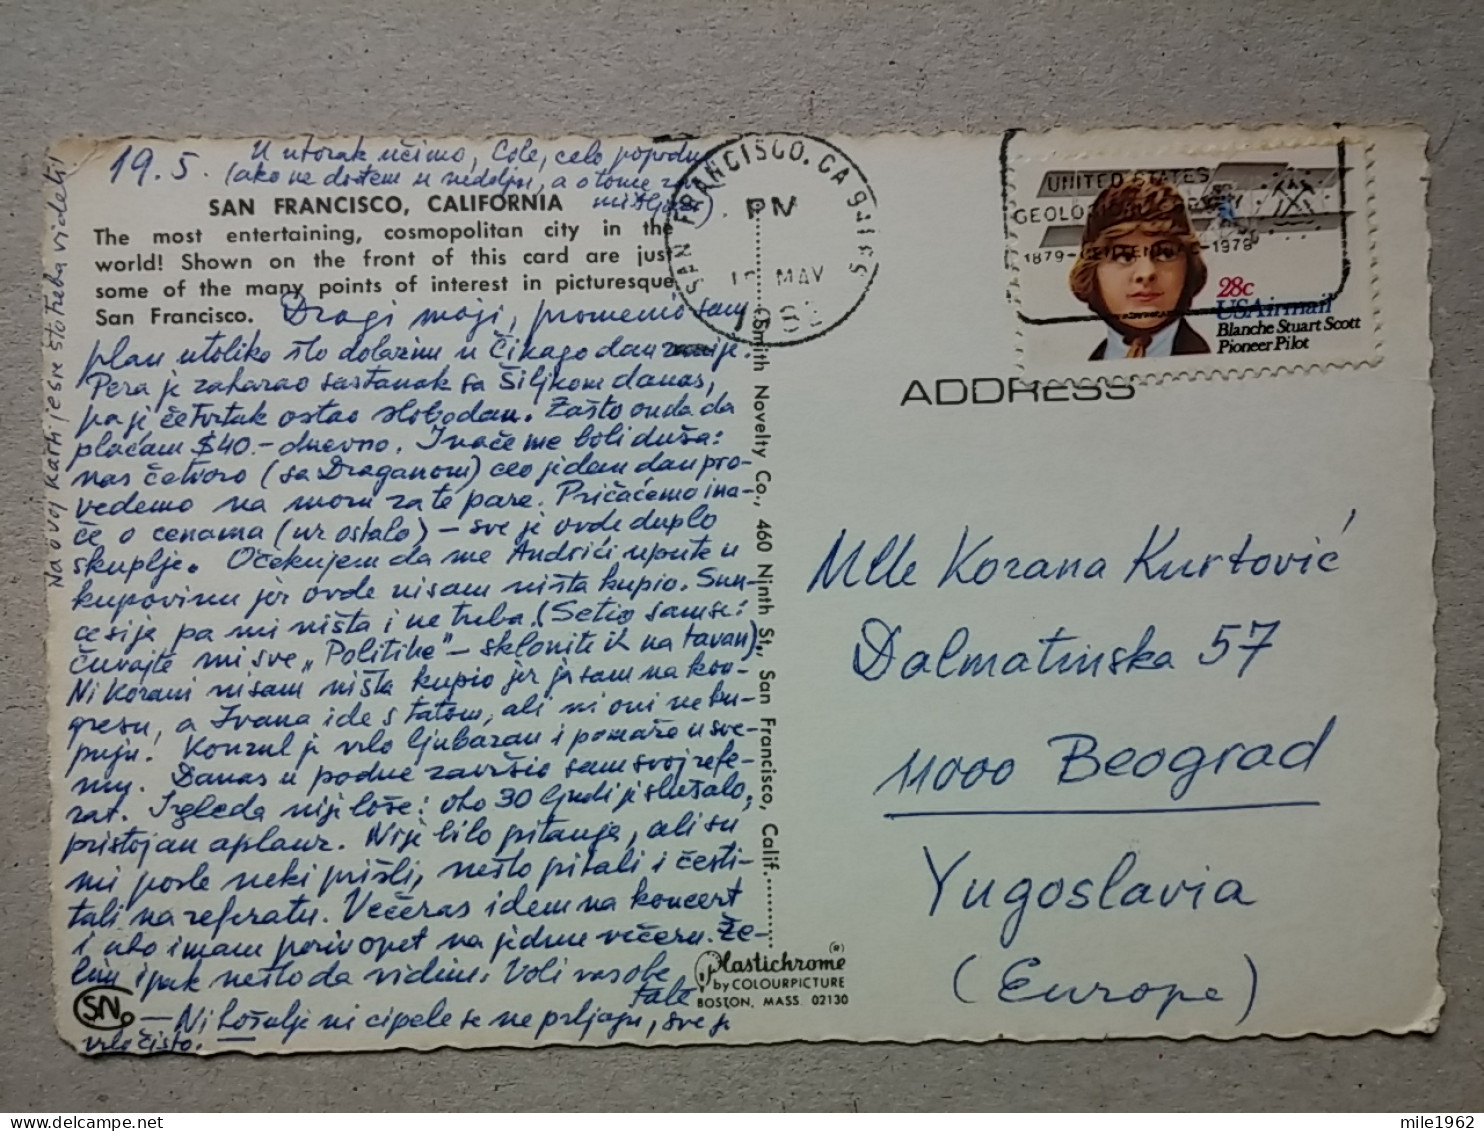 19.5. U utorak učimo, Cole, celo popodne
(ako ne dođem u nedelju, a o tome raz
mišljam)
SAN FRANCISCO, CALIFORNIA
The most entertaining, cosmopolitan city in the
world! Shown on the front of this card are just
some of the many points of interest in picturesque
San Francisco. Dragi moji, promenio sam
plan utoliko što dolazim u Čikago dan ranije.
Pera je zakazao sastanak sa Šiljkom danas,
pa je četvrtak ostao slobodan. Zašto onda da
plaćam $40.- dnevno. Inače me boli duša:
nas četvoro (sa Draganom) ceo jedan dan pro-
vedemo na moru za te pare. Pričaćemo ina-
če o cenama (uz ostalo) – sve je ovde duplo
skuplje. Očekujem da me Andrići upute u
kupovinu jer ovde nisam ništa kupio. Sun-
ce sija pa mi ništa i ne treba. (Setio sam se:
čuvajte mi sve „Politike" – sklonite ih na tavan)
Ni Korani nisam ništa kupio jer ja sam na kon-
gresu, a Ivana ide s tatom, ali ni oni ne ku-
puju! Konzul je vrlo ljubazan i pomaže u sve-
mu. Danas u podne završio sam svoj refe-
rat. Izgleda nije loše: oko 30 ljudi je slušalo,
pristojan aplauz. Nije bilo pitanja, ali su
mi posle neki prišli, nešto pitali i česti-
tali na referatu. Večeras idem na koncert
i ako imam poziv opet na jednu večeru. Že-
lim ipak nešto da vidim. Voli vas obe
tale
– Ni košulje ni cipele se ne prljaju, sve je
vrlo čisto.
SN
Na ovoj karti je sve što treba videti!
SAN FRANCISCO, CA 941
PM
MAY
UNITED STATES
GEOLOGICAL SURVEY
1879-CENTENNIAL-1979
28c
USAirmail
Blanche Stuart Scott
Pioneer Pilot
Smith Novelty Co., 460 Ninth St., San Francisco, Calif.
ADDRESS
Mlle Korana Kurtović
Dalmatinska 57
11000 Beograd
Yugoslavia
(Europe)
Plastichrome (R)
by COLOURPICTURE
BOSTON, MASS. 02130
mile1962